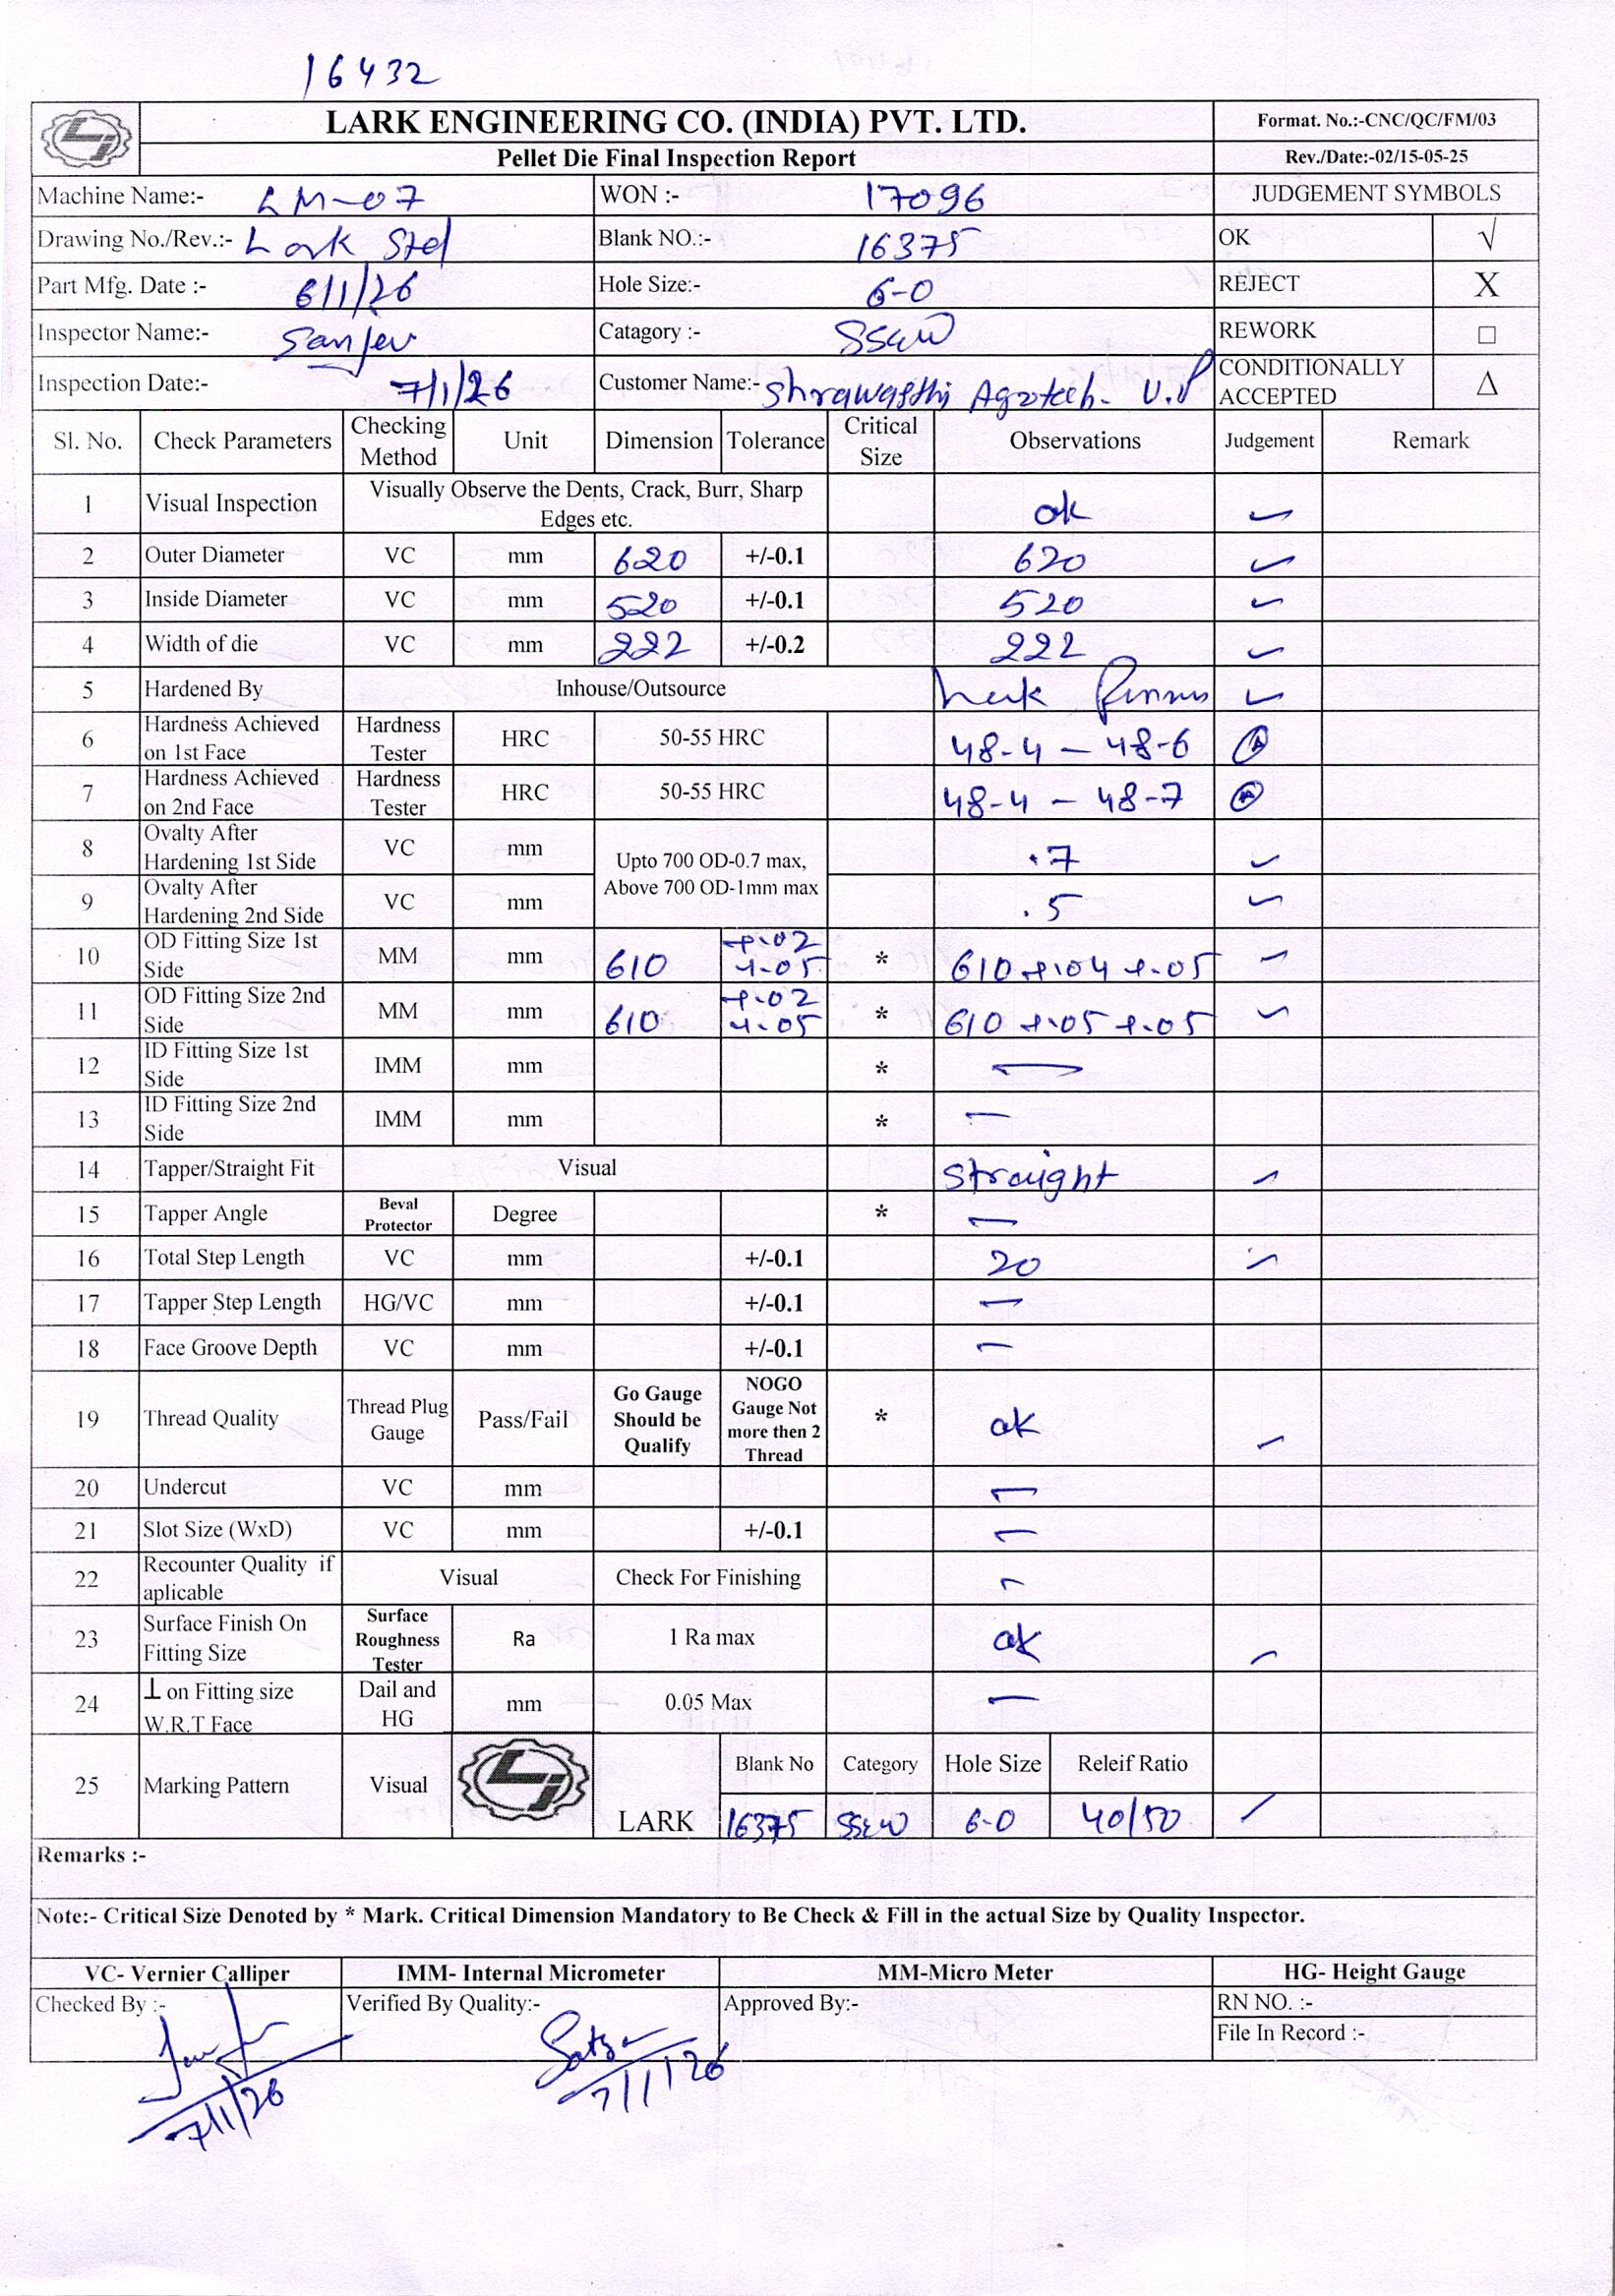 16432
LARK ENGINEERING CO. (INDIA) PVT. LTD. Format. No.:-CNC/QC/FM/03
Pellet Die Final Inspection Report Rev./Date:-02/15-05-25
Machine Name:- LM-07 WON :- 17096 JUDGEMENT SYMBOLS
Drawing No./Rev.:- Lark Std Blank NO.:- 16375 OK √
Part Mfg. Date :- 6/1/26 Hole Size:- 6-0 REJECT X
Inspector Name:- Sanjev Catagory :- SS4W REWORK □
Inspection Date:- 7/1/26 Customer Name:- Shrawasthi Agrotech- U.P CONDITIONALLY ACCEPTED Δ
Sl. No. Check Parameters Checking Method Unit Dimension Tolerance Critical Size Observations Judgement Remark
1 Visual Inspection Visually Observe the Dents, Crack, Burr, Sharp Edges etc. ok ✓
2 Outer Diameter VC mm 620 +/-0.1 620 ✓
3 Inside Diameter VC mm 520 +/-0.1 520 ✓
4 Width of die VC mm 222 +/-0.2 222 ✓
5 Hardened By Inhouse/Outsource ✓
6 Hardness Achieved on 1st Face Hardness Tester HRC 50-55 HRC 48-4 – 48-6
7 Hardness Achieved on 2nd Face Hardness Tester HRC 50-55 HRC 48-4 – 48-7
8 Ovalty After Hardening 1st Side VC mm Upto 700 OD-0.7 max, Above 700 OD-1mm max .7 ✓
9 Ovalty After Hardening 2nd Side VC mm .5 ✓
10 OD Fitting Size 1st Side MM mm 610 +.02 +.05 * 610 +.04 +.05 ✓
11 OD Fitting Size 2nd Side MM mm 610 +.02 +.05 * 610 +.05 +.05 ✓
12 ID Fitting Size 1st Side IMM mm * —
13 ID Fitting Size 2nd Side IMM mm * —
14 Tapper/Straight Fit Visual Straight ✓
15 Tapper Angle Beval Protector Degree * —
16 Total Step Length VC mm +/-0.1 20 ✓
17 Tapper Step Length HG/VC mm +/-0.1 —
18 Face Groove Depth VC mm +/-0.1 —
19 Thread Quality Thread Plug Gauge Pass/Fail Go Gauge Should be Qualify NOGO Gauge Not more then 2 Thread * ok ✓
20 Undercut VC mm —
21 Slot Size (WxD) VC mm +/-0.1 —
22 Recounter Quality if aplicable Visual Check For Finishing —
23 Surface Finish On Fitting Size Surface Roughness Tester Ra 1 Ra max ok ✓
24 ⊥ on Fitting size W.R.T Face Dail and HG mm 0.05 Max —
25 Marking Pattern Visual LARK Blank No Category Hole Size Releif Ratio
16375 SS4W 6-0 40/50 ✓
Remarks :-
Note:- Critical Size Denoted by * Mark. Critical Dimension Mandatory to Be Check & Fill in the actual Size by Quality Inspector.
VC- Vernier Calliper IMM- Internal Micrometer MM-Micro Meter HG- Height Gauge
Checked By :- Verified By Quality:- Approved By:- RN NO. :-
File In Record :-
7/1/26 7/1/26